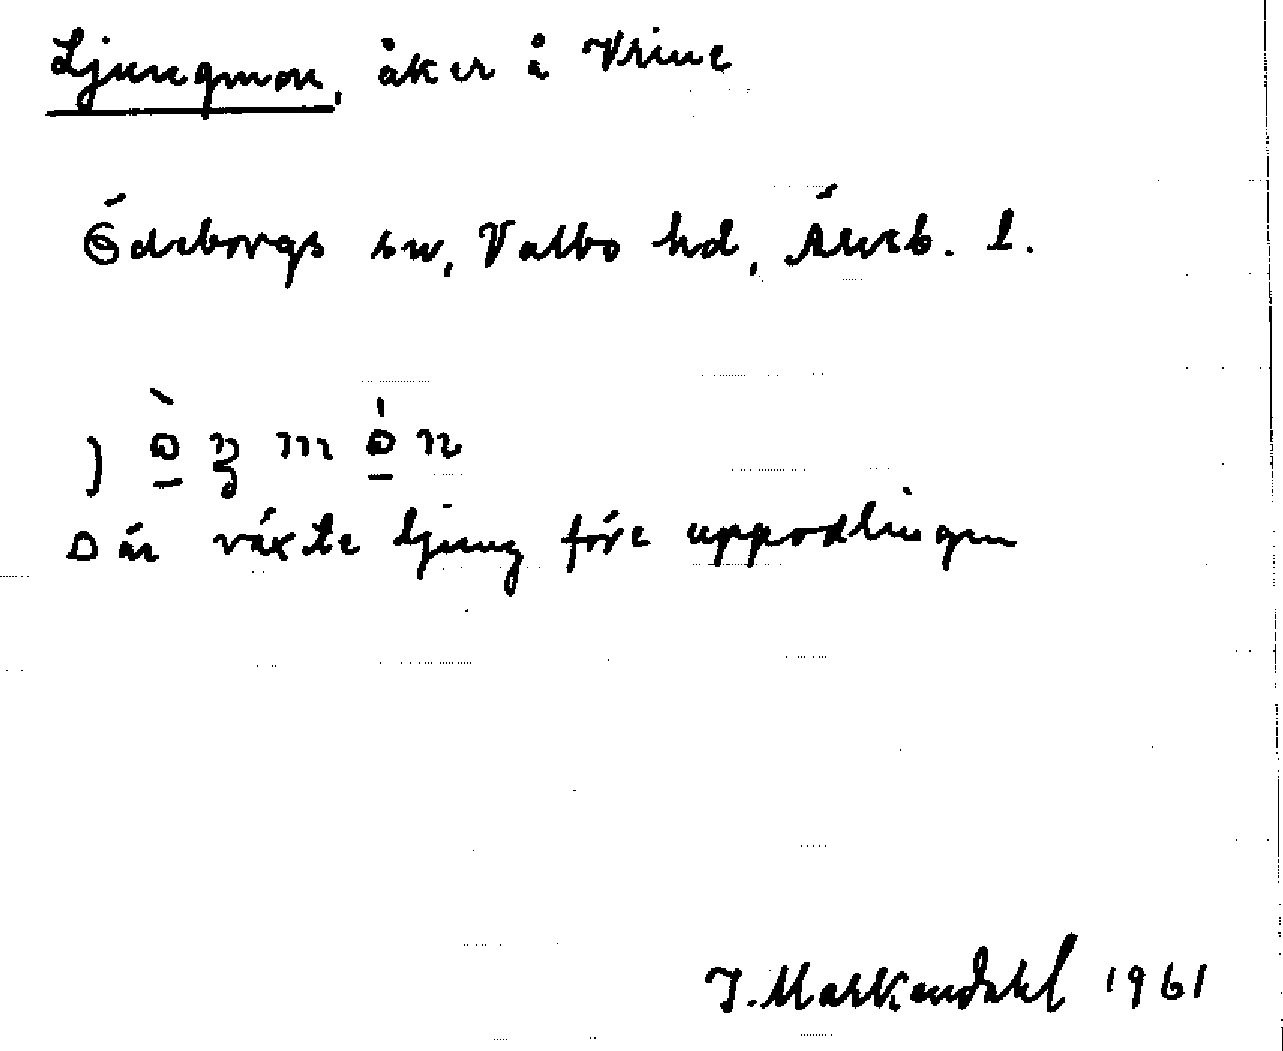 Ljungmon, åker å Vrine
Ödeborgs sn, Valbo hd, Älvsb. l.
Där växte ljung före uppodlingen
J. Markendahl 1961